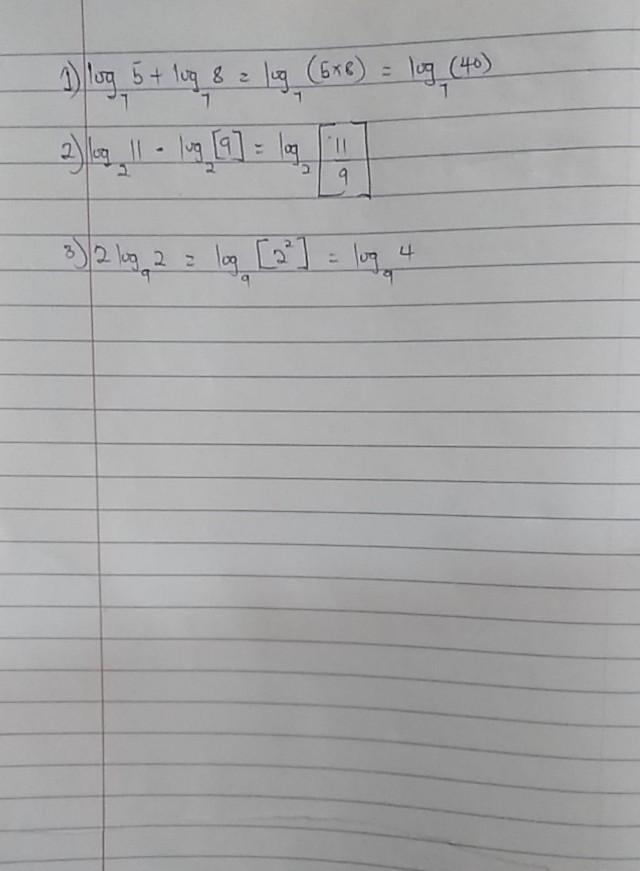 1) log₇ 5 + log₇ 8 = log₇ (5×8) = log₇ (40)
2) log₂ 11 - log₂ [9] = log₂ [11/9]
3) 2 log₉ 2 = log₉ [2²] = log₉ 4